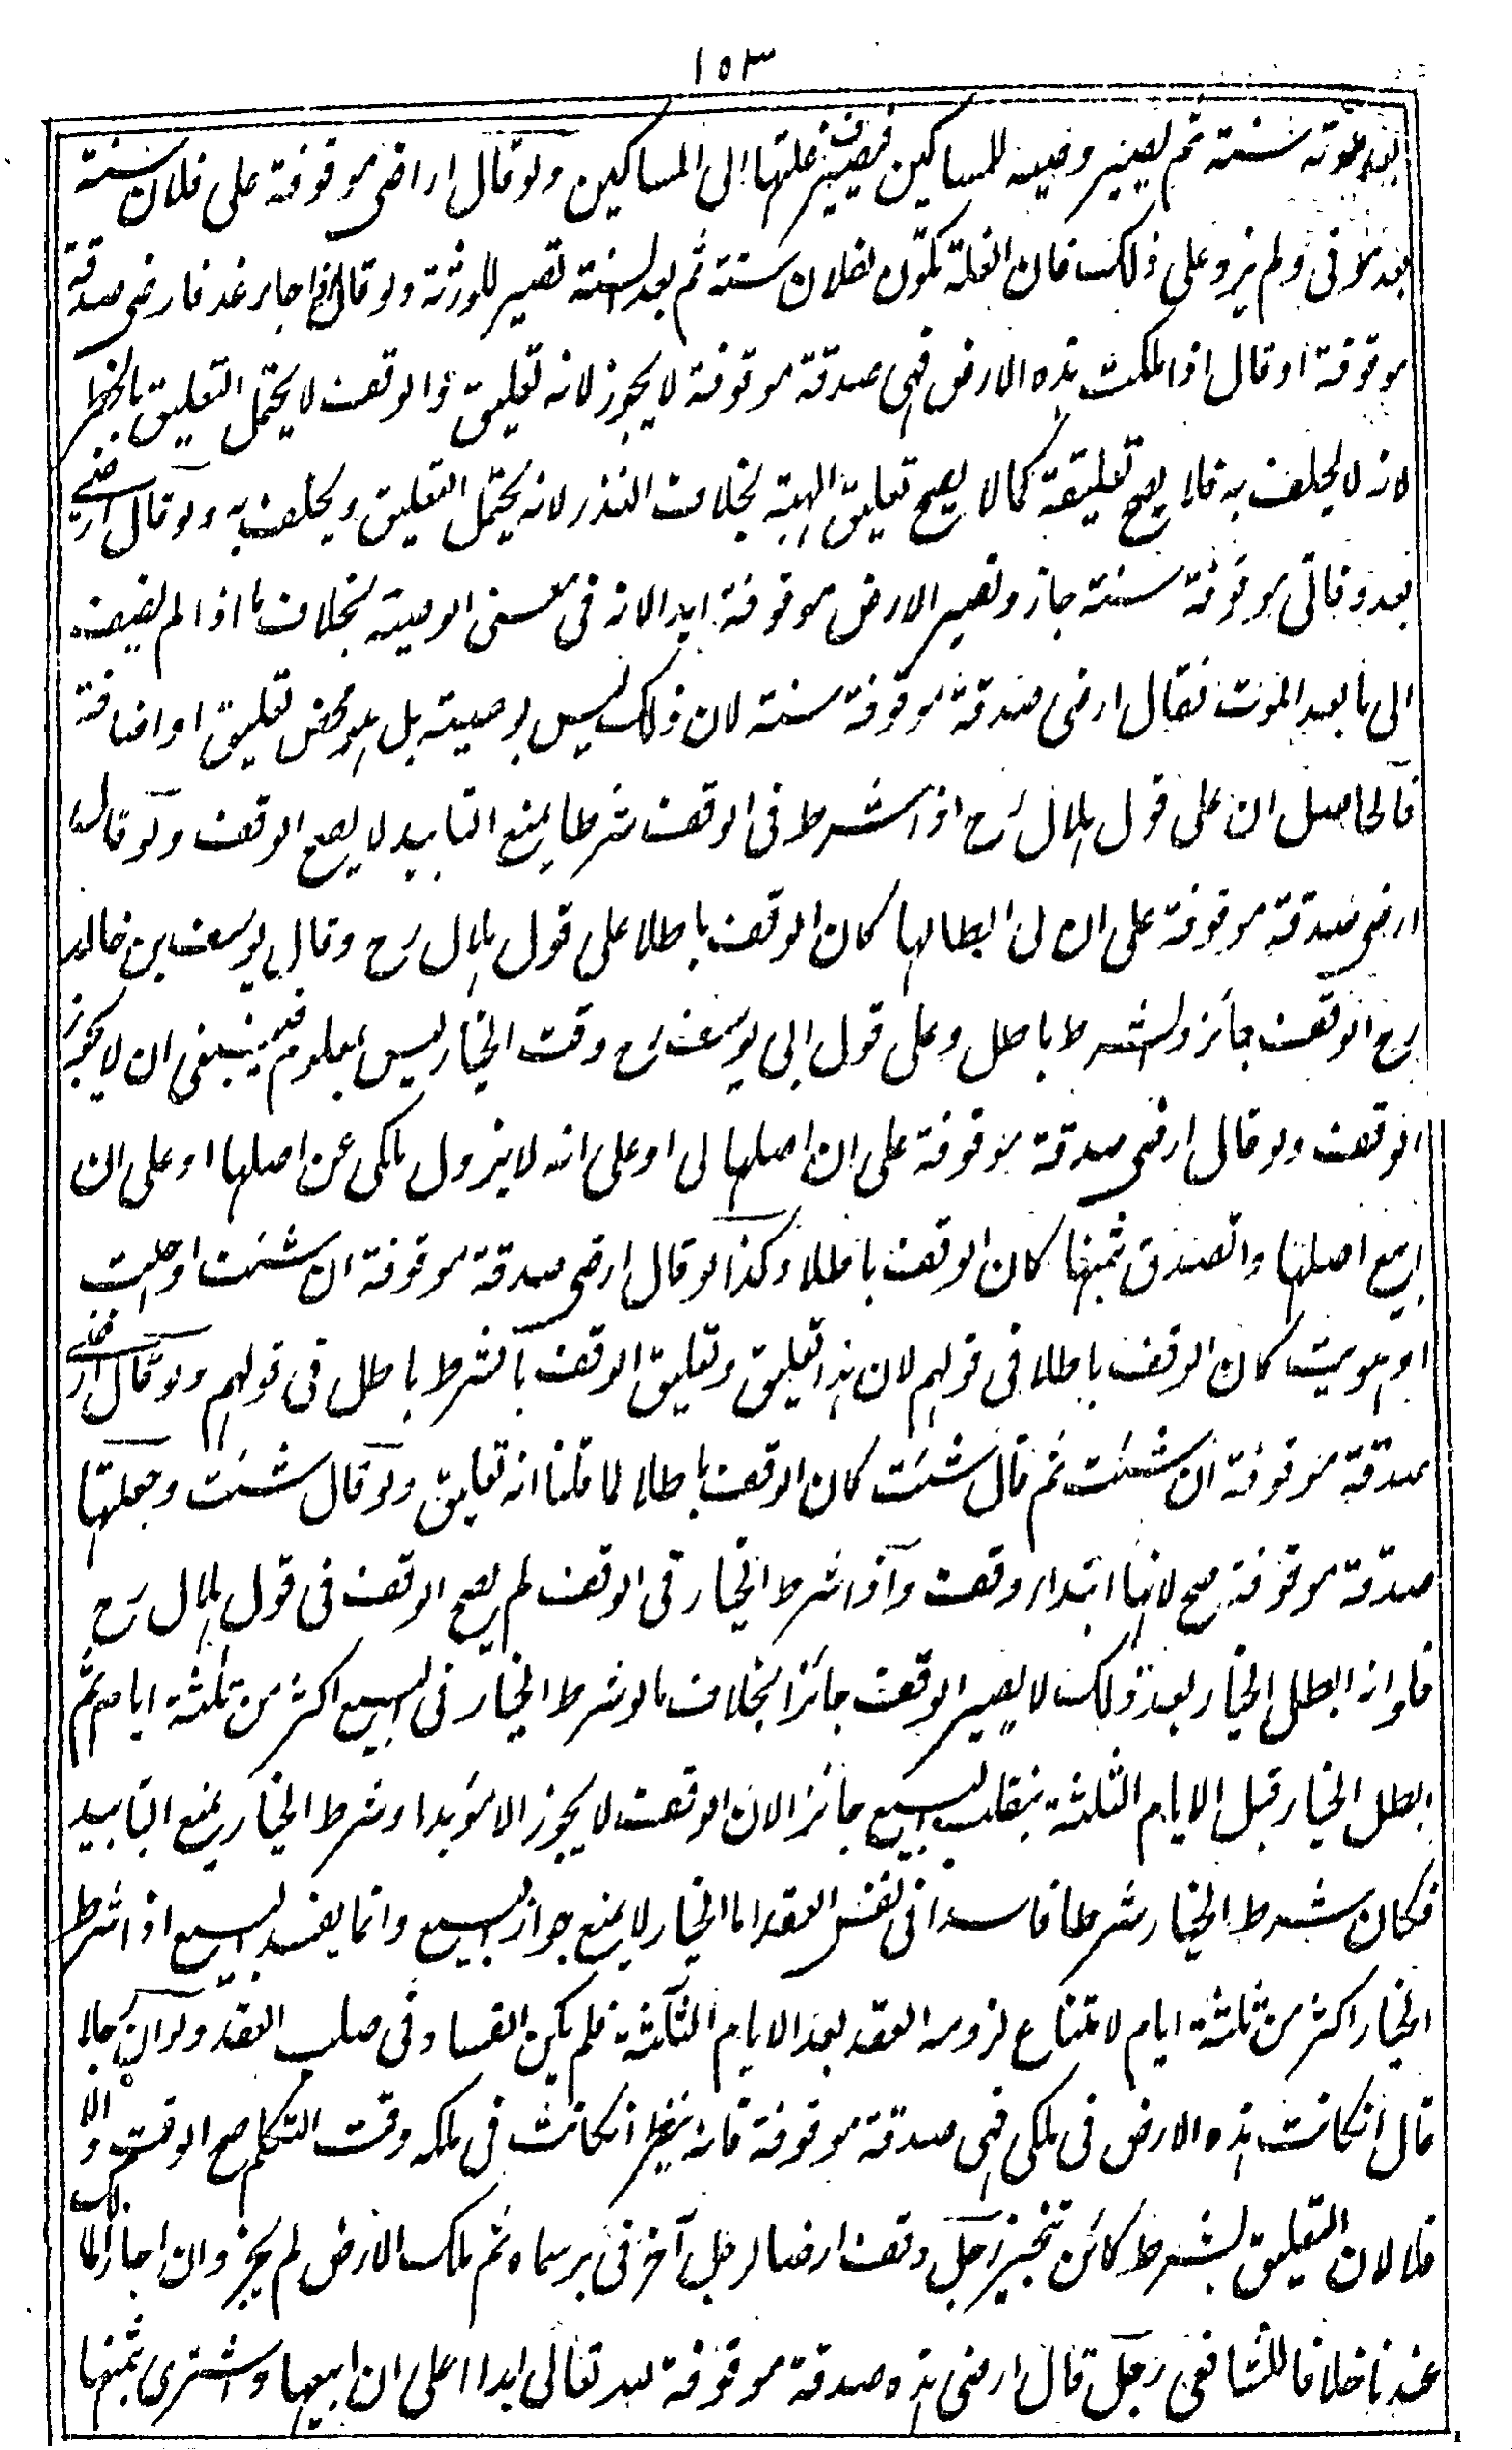 ١٥٣
بعد موته سنة ثم يصير وصية للمساكين فيصير غلتها الى المساكين ولو قال ارضى موقوفة على فلان سنة
بعد موتى ولم يزد على ذلك فان الغلة تكون لفلان سنة ثم بعد السنة تصير للورثة ولو قال اذا جاء غد فارضى صدقة
موقوفة او قال اذا ملكت هذه الارض فهى صدقة موقوفة لا يجوز لانه تعليق والوقف لا يحتمل التعليق بالخطر
لانه لا يحلف به فلا يصح تعليقه كما لا يصح تعليق الهبة بخلاف النذر لانه يحتمل التعليق ويحلف به ولو قال ارضى
بعد وفاتى موقوفة سنة جاز وتصير الارض موقوفة ابدا لانه فى معنى الوصية بخلاف ما اذا لم يضف
الى ما بعد الموت فقال ارضى صدقة موقوفة سنة لان ذلك ليس بوصية بل هو محض تعليق او اضافة
فالحاصل ان على قول هلال رح اذا شرط فى الوقف شرطا يمنع التابيد لا يصح الوقف ولو قال
ارضى صدقة موقوفة على ان لى ابطالها كان الوقف باطلا على قول هلال رح وقال يوسف بن خالد
رح الوقف جائز والشرط باطل وعلى قول ابى يوسف رح وقت الخيار ليس بمعلوم فينبغى ان لا يجوز
الوقف ولو قال ارضى صدقة موقوفة على ان اصلها لى او على انه لا يزول ملكى عن اصلها او على ان
ابيع اصلها واتصدق بثمنها كان الوقف باطلا وكذا لو قال ارضى صدقة موقوفة ان شئت او احببت
او هويت كان الوقف باطلا فى قولهم لان هذا تعليق وتعليق الوقف بالشرط باطل فى قولهم ولو قال ارضى
صدقة موقوفة ان شئت ثم قال شئت كان الوقف باطلا لما قلنا انه تعليق ولو قال شئت وجعلتها
صدقة موقوفة صح لانها ابتداء وقف واذا شرط الخيار فى الوقف لم يصح الوقف فى قول هلال رح
فلو انه ابطل الخيار بعد ذلك لا يصير الوقف جائزا بخلاف ما لو شرط الخيار فى البيع اكثر من ثلثة ايام ثم
ابطل الخيار قبل الايام الثلثة ينقلب البيع جائزا لان الوقف لا يجوز الا مؤبدا وشرط الخيار يمنع التابيد
فكان شرط الخيار شرطا فاسدا فى نفس العقد اما الخيار لا يمنع جواز البيع وانما يفسد البيع اذا شرط
الخيار اكثر من ثلثة ايام لامتناع لزوم العقد بعد الايام الثلثة فلم يكن الفساد فى صلب العقد ولو ان رجلا
قال ان كانت هذه الارض فى ملكى فهى صدقة موقوفة فانه ينظر ان كانت فى ملكه وقت التكلم صح الوقف والا
فلا لان التعليق بشرط كائن تنجيز رجل وقف ارضا لرجل آخر فى بر سماه ثم ملك الارض لم يجز وان اجاز المالك
عندنا خلافا للشافعى رجل قال ارضى هذه صدقة موقوفة لله تعالى ابدا على ان ابيعها واشترى بثمنها